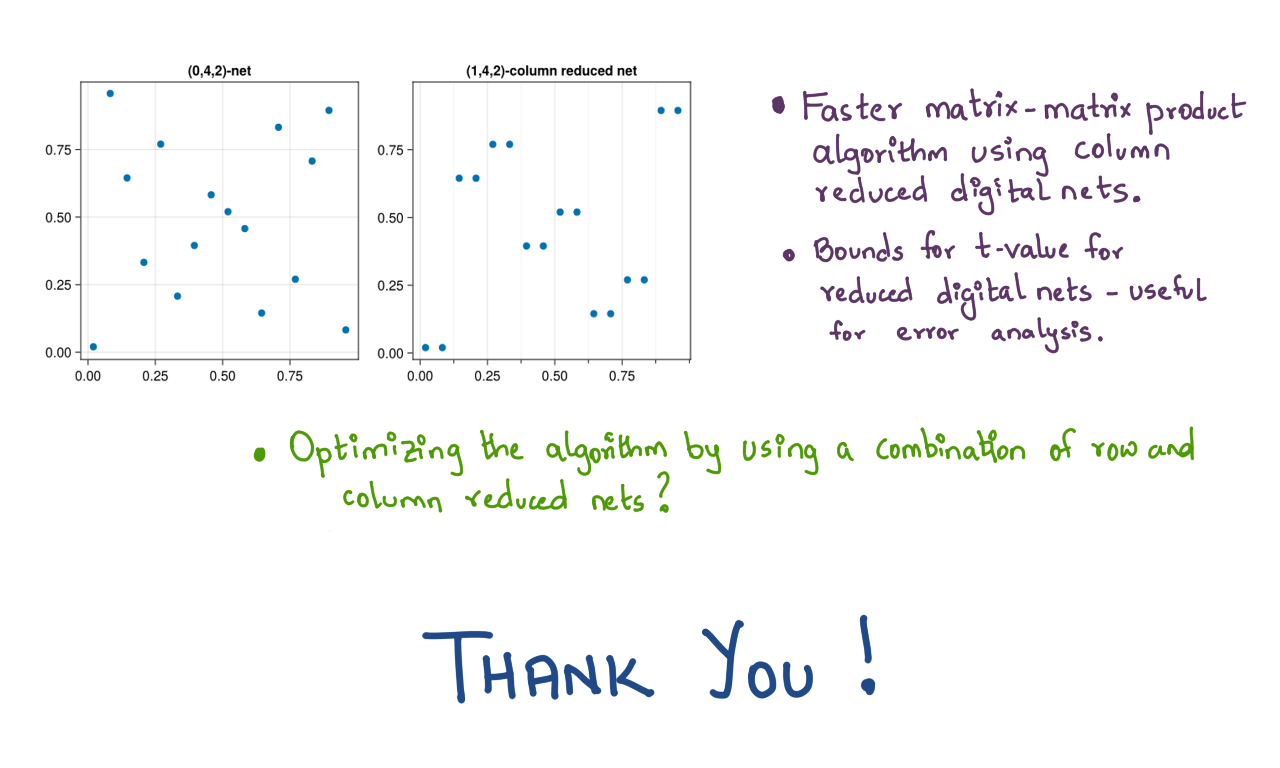 (0,4,2)-net
0.75
0.50
0.25
0.00
0.00 0.25 0.50 0.75
(1,4,2)-column reduced net
0.75
0.50
0.25
0.00
0.00 0.25 0.50 0.75
• Faster matrix-matrix product
algorithm using column
reduced digital nets.
• Bounds for t-value for
reduced digital nets - useful
for error analysis.
• Optimizing the algorithm by using a combination of row and
column reduced nets?
THANK YOU!